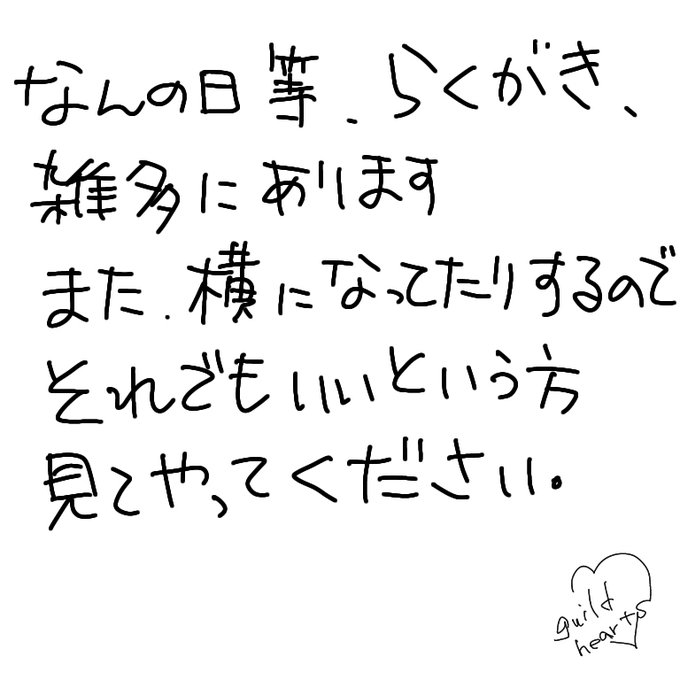 なんの日等、らくがき、
雑多にあります
また、横になってたりするので
それでもいいという方
見てやってください。
guild
hearts